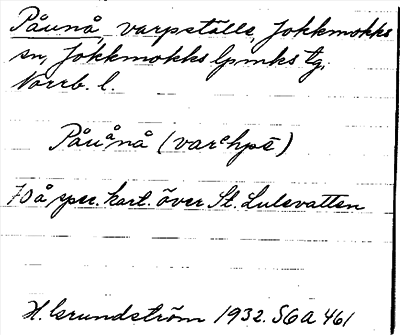 Påunå, varpställe, Jokkmokks
sn, Jokkmokks lpmks tg.
Norrb. l.
Påuånå (var
70 å spec. kart. över St. Lulevatten
H. Grundström 1932. SGA 461